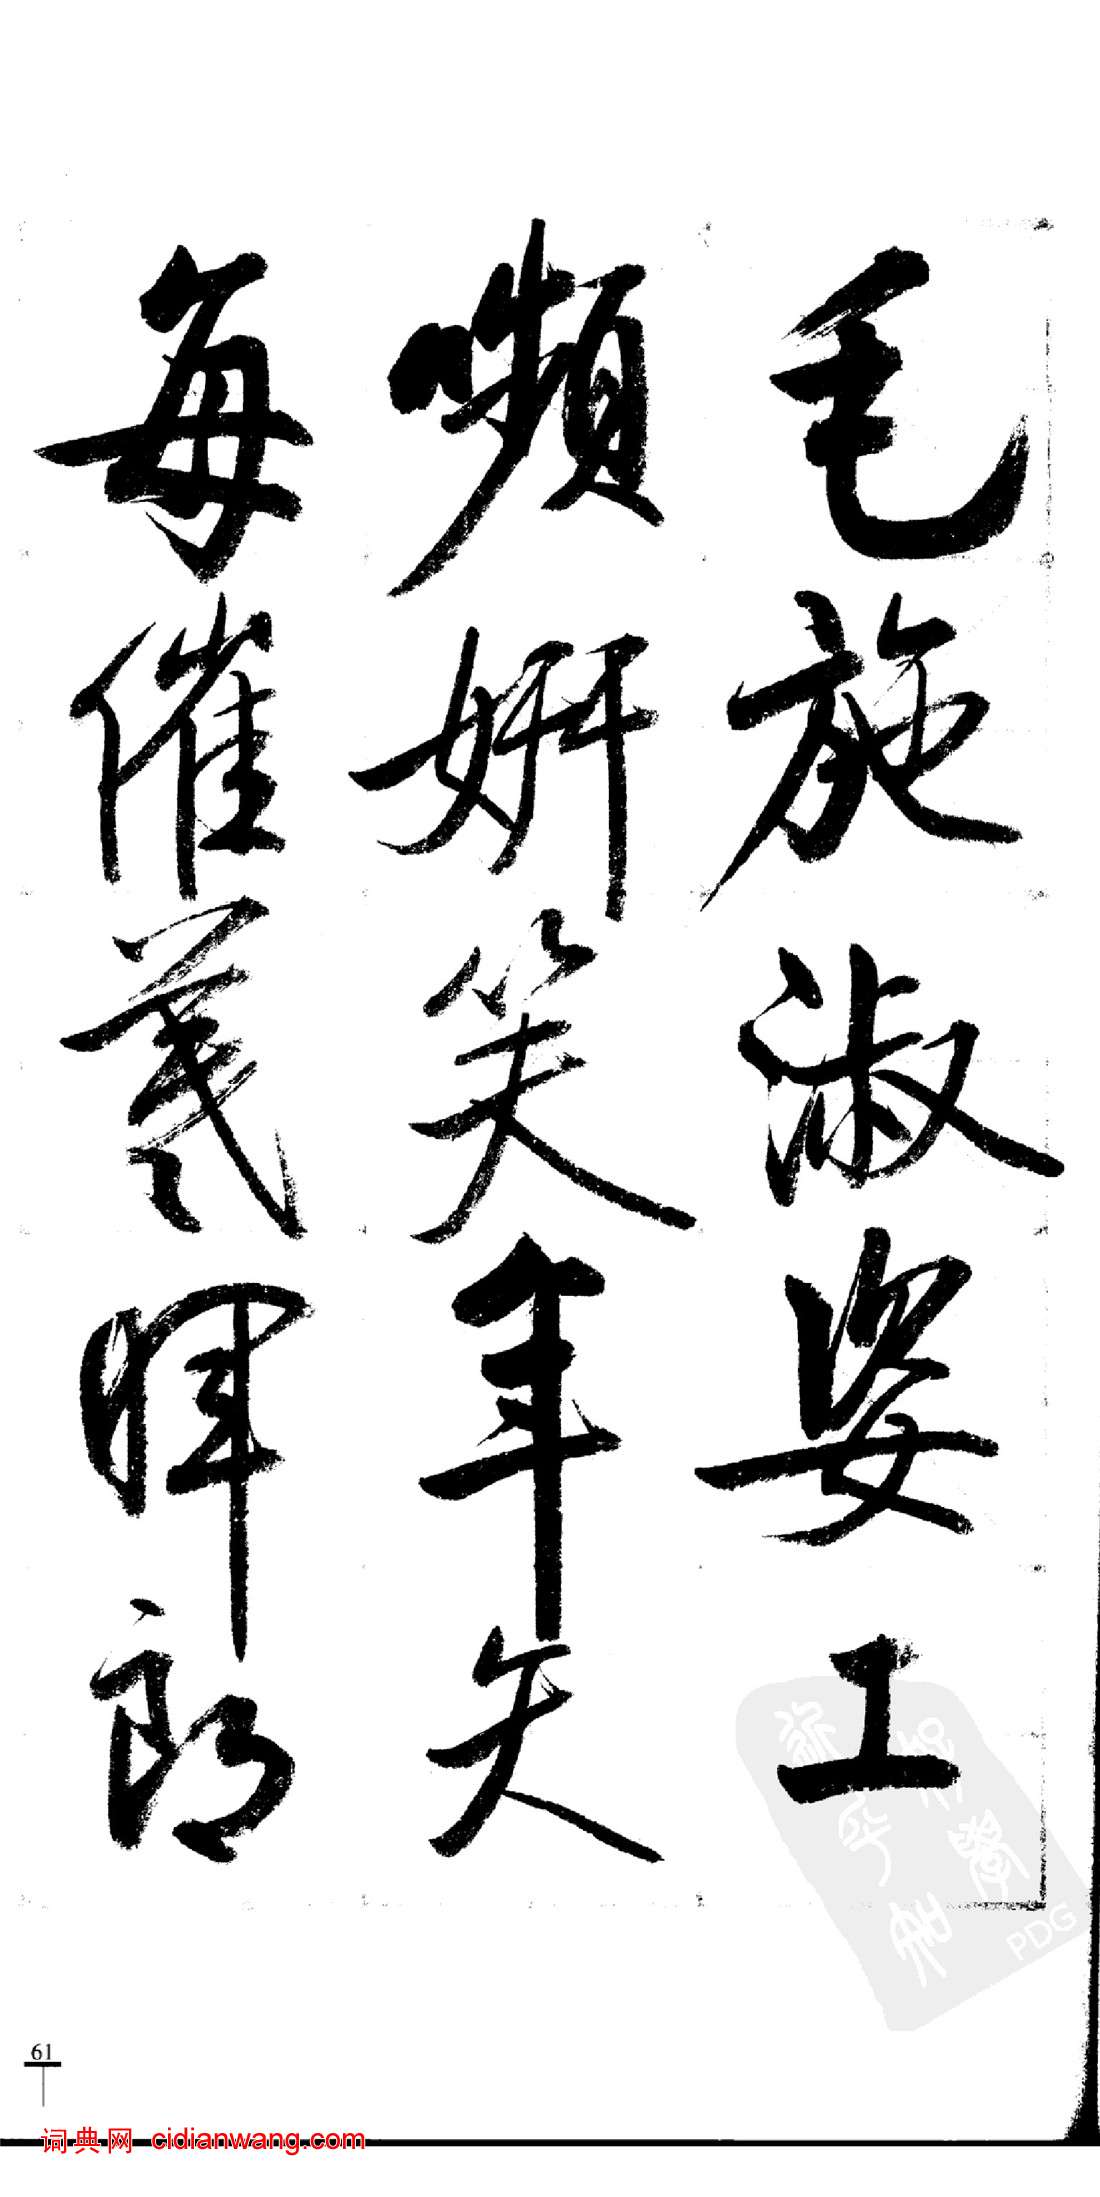 毛施淑姿工
嚬妍笑年矢
每催羲晖郎
61
词典网 cidianwang.com
PDG